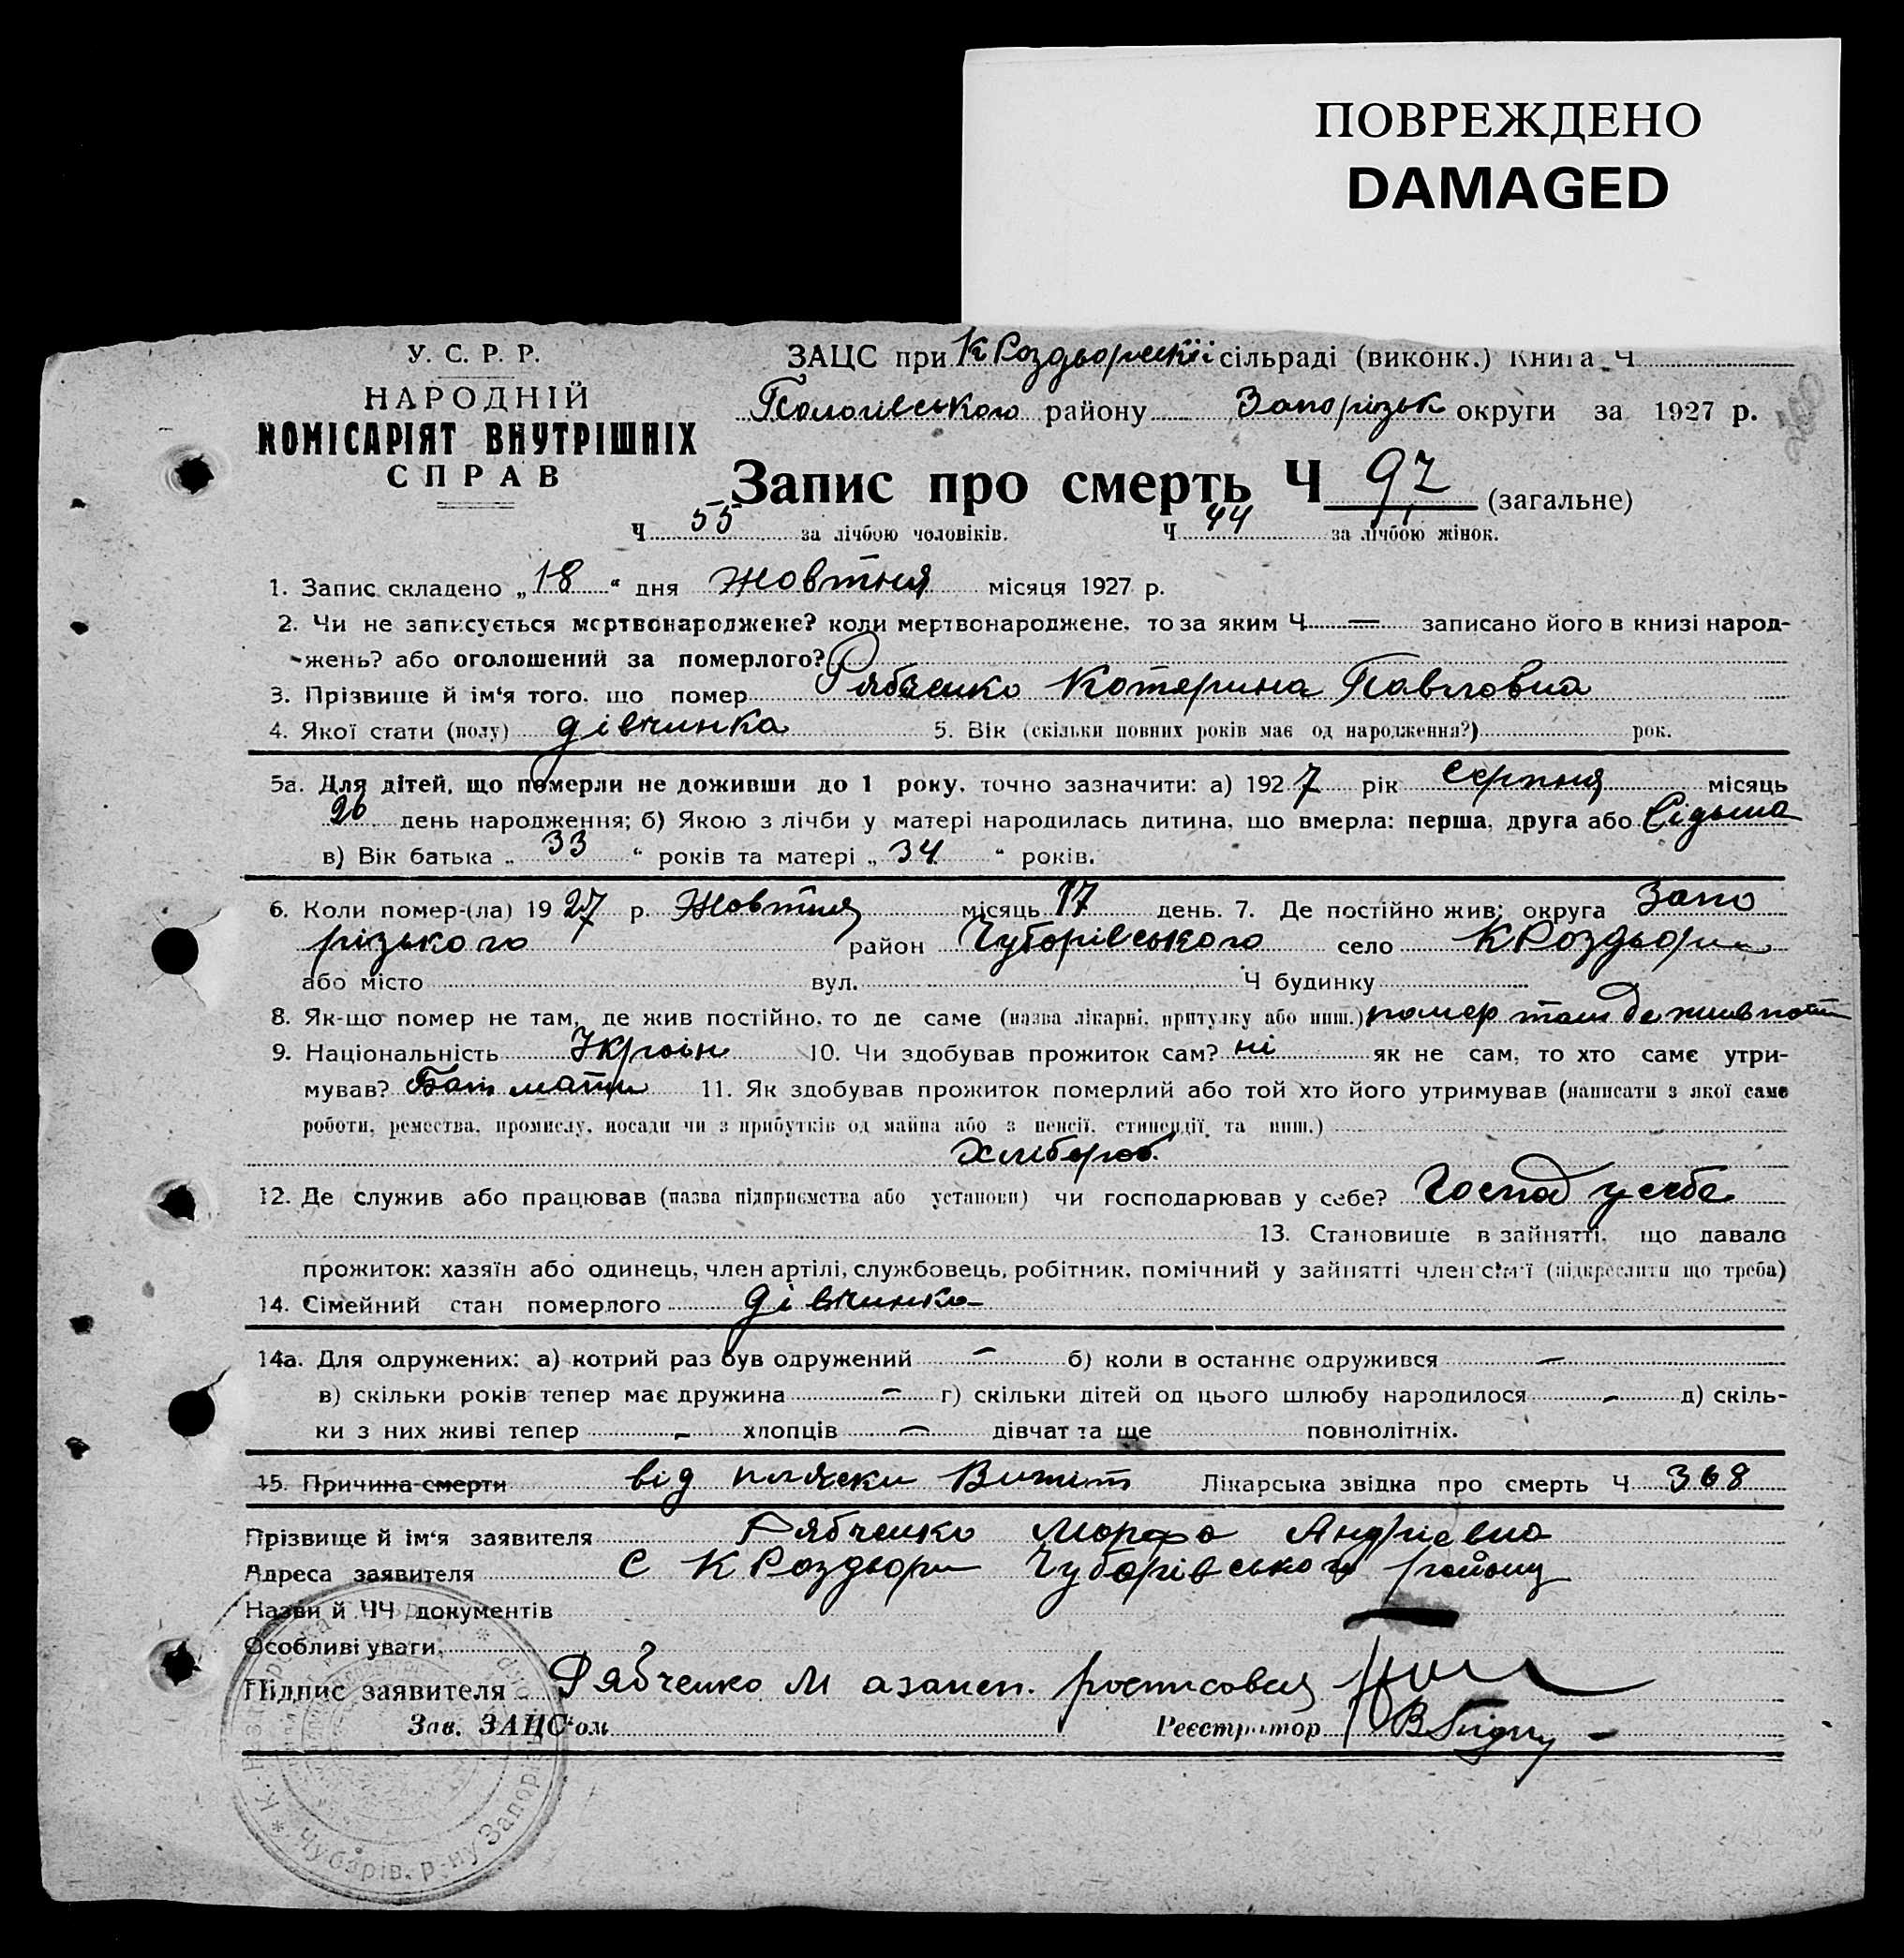 ПОВРЕЖДЕНО
DAMAGED
У. С. Р. Р.
НАРОДНІЙ
КОМІСАРІЯТ ВНУТРІШНІХ
СПРАВ
ЗАЦС при К Роздорській сільраді (виконк.) Книга Ч
Пологівського району Запорізьк округи за 1927 р.
Запис про смерть Ч 97 (загальне)
Ч 55 за лічбою чоловіків. Ч 44 за лічбою жінок.
1. Запис складено „18“ дня Жовтня місяця 1927 р.
2. Чи не записується мертвонароджене? коли мертвонароджене, то за яким Ч — записано його в книзі народ-
жень? або оголошений за померлого?
3. Прізвище й ім'я того, що помер Рябченко Катерина Павловна
4. Якої стати (полу) дівчинка 5. Вік (скільки повних років має од народження?) рок.
5а. Для дітей, що померли не доживши до 1 року, точно зазначити: а) 1927 рік серпня місяць
26 день народження; б) Якою з лічби у матері народилась дитина, що вмерла: перша, друга або Сідьма
в) Вік батька „33“ років та матері „34“ років.
6. Коли помер-(ла) 1927 р. Жовтня місяць 17 день. 7. Де постійно жив: округа Запо
різького район Чубарівського село К Роздори
або місто вул. Ч будинку
8. Як-що помер не там, де жив постійно, то де саме (назва лікарні, притулку або инш.) помер там де жив
9. Національність Україн 10. Чи здобував прожиток сам? ні як не сам, то хто саме утри-
мував? Бат мати 11. Як здобував прожиток померлий або той хто його утримував (написати з якої саме
роботи, ремества, промислу, посади чи з прибутків од майна або з пенсії, стипендії та инш.)
Хлібороб.
12. Де служив або працював (назва підприємства або установи) чи господарював у себе? Господ у себе
13. Становище в зайнятті, що давало
прожиток: хазяїн або одинець, член артілі, службовець, робітник, помічний у зайнятті член сім'ї (підкреслити що треба)
14. Сімейний стан померлого дівчинка
14а. Для одружених: а) котрий раз був одружений — б) коли в останнє одружився —
в) скільки років тепер має дружина — г) скільки дітей од цього шлюбу народилося — д) скіль-
ки з них живі тепер — хлопців — дівчат та ще повнолітніх.
15. Причина смерти від пляски Лікарська звідка про смерть Ч 368
Прізвище й ім'я заявителя Рябченко Марфа Андріевна
Адреса заявителя С К Роздори Чубарівського району
Назви й ЧЧ документів
Особливі уваги
Підпис заявителя Рябченко М
Зав. ЗАЦС'ом Реєстратор
Чубарів. р-ну Запоріз